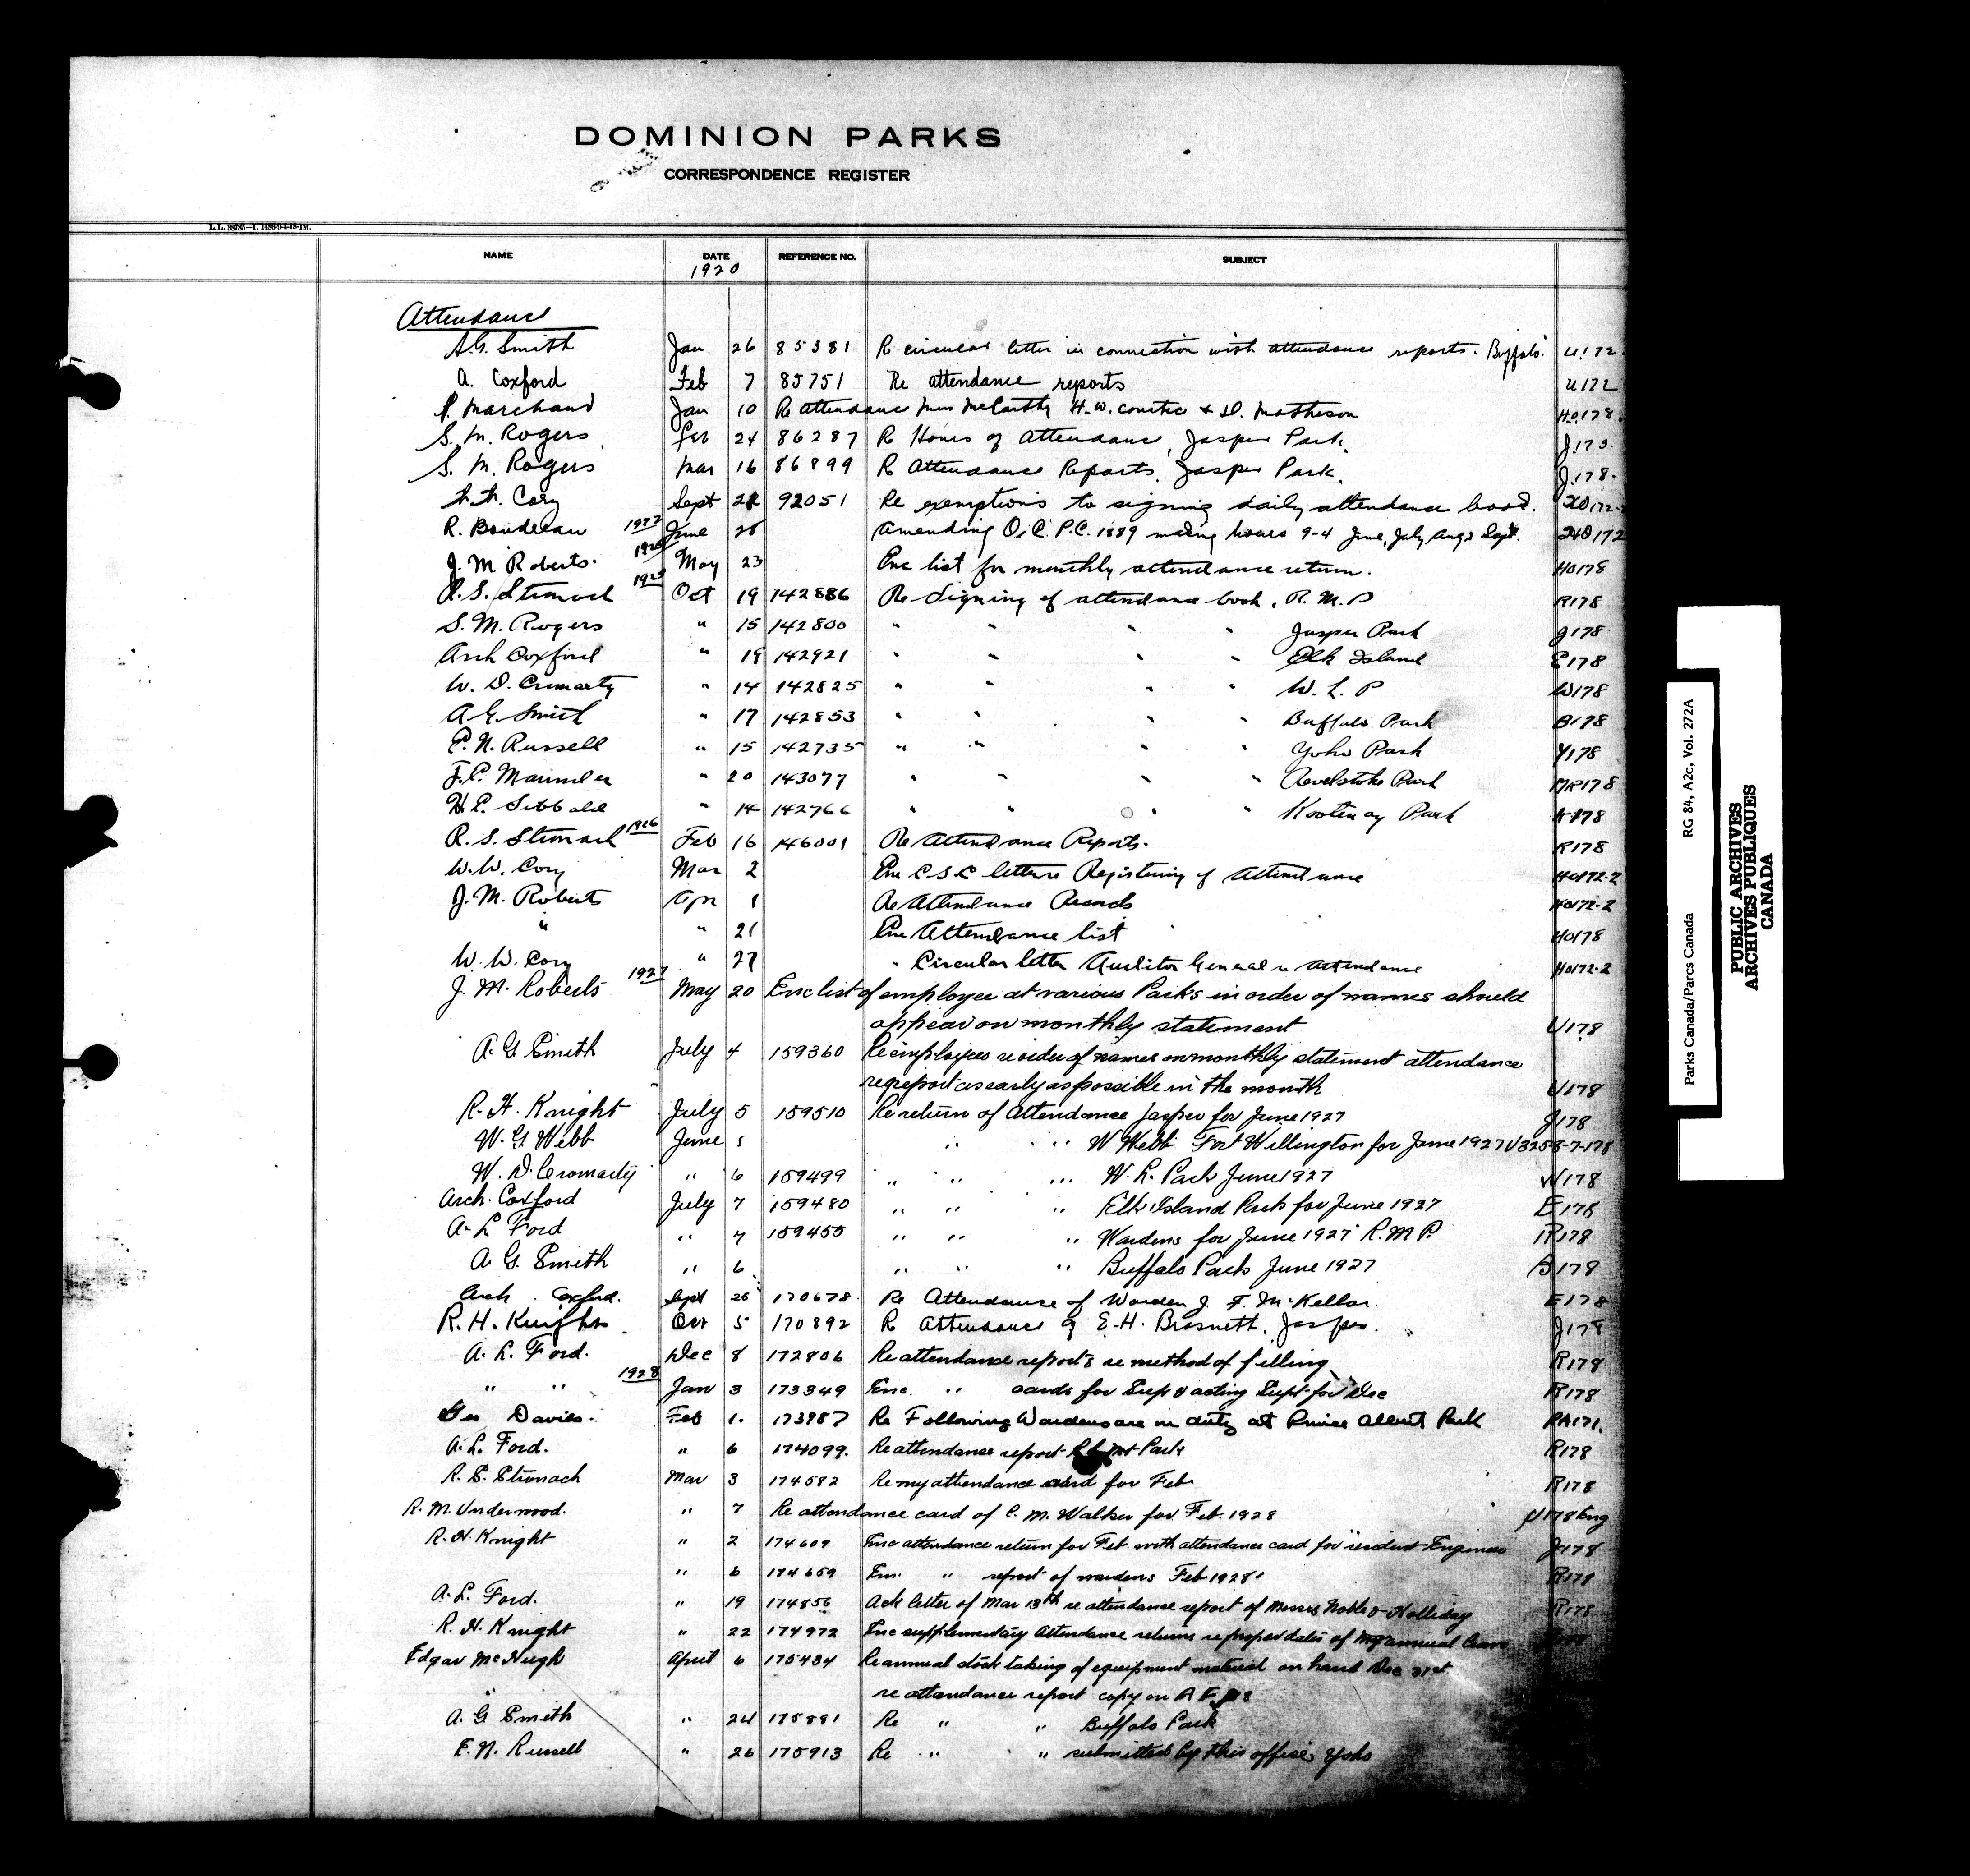 DOMINION PARKS
CORRESPONDENCE REGISTER
L.L. 38785—1. 1486-9-4-18-1M.
NAME DATE REFERENCE NO. SUBJECT
1920
Attendance
A.G. Smith Jan 26 85381 Re circular letter in connection with attendance reports. Buffalo. U.172.
A. Coxford Feb 7 85751 Re attendance reports U172
P. Marchand Jan 10 Re attendance Miss McCarthy H.W. & D. Matheson HO.178.
S. M. Rogers Feb 24 86287 Re Hours of Attendance, Jasper Park. J.178.
S. M. Rogers Mar 16 86899 Re Attendance Reports, Jasper Park. J.178.
Cory Sept 92051 Re exemptions to signing daily attendance book.
R. Boudreau 1922 June 28 Amending O.C. P.C. 1889 making hours 9-4 June, July, Aug & Sept. 172
J. M Roberts. May 23 Enc list for monthly attendance return. HO178
R. S. Stronach 1925 Oct 19 142886 Re Signing of attendance book, R. M. P R178
S. M. Rogers " 15 142800 " " " " Jasper Park J178
Arch Coxford " 19 142921 " " " " Elk Island E178
W. D. Cromarty " 14 142825 " " " " W. L. P W178
A G. Smith " 17 142853 " " " " Buffalo Park B178
E. N. Russell " 15 142735 " " " " Yoho Park Y178
F. C. Maunder " 20 143077 " " " " Revelstoke Park MR178
H. E. Sibbald " 14 142766 " " " " Kootenay Park K178
R. S. Stronach 1926 Feb 16 146001 Re Attendance Reports. R178
W. W. Cory Mar 2 Enc C S C letter re Registering of Attendance HO172-2
J. M. Roberts Apr 1 Re Attendance Records HO172-2
" " 21 Enc Attendance list HO178
W. W. Cory " 27 " Circular letter Auditor General re Attendance HO172-2
J. M. Roberts 1927 May 20 Enc list of employee at various Parks in order of names should
appear on monthly statement U178
A. G Smith July 4 159360 Re employees re order of names on monthly statement attendance
report as early as possible in the month U178
R. H. Knight July 5 159510 Re return of Attendance Jasper for June 1927 J178
W. G Webb June 5 " " W Webb Fort Wellington for June 1927
W. D. Cromarty " 6 159499 " " " W. L. Park June 1927 W178
Arch. Coxford July 7 159480 " " " Elk Island Park for June 1927 E178
A. L Ford " 7 159455 " " " Wardens for June 1927 R.M P. R178
A G. Smith " 6 " " " Buffalo Park June 1927 B178
Arch. Coxford. Sept 25 170678 Re Attendance of Warden J. F. McKellar. E178
R. H. Knight Oct 5 170892 Re Attendance of E. H. Brasnett, Jasper. J178
A. L. Ford. Dec 8 172806 Re attendance reports re method of filling R178
" " 1928 Jan 3 173349 Enc. " cards for Supt & acting Supt for Dec R178
Geo Davies. Feb 1. 173987 Re Following Wardens are on duty at Prince Albert Park PA171.
A. L. Ford. " 6 174099. Re attendance report Mt Park R178
R. S. Stronach Mar 3 174582 Re my attendance card for Feb R178
R. M. Underwood. " 7 Re attendance card of C. M. Walker for Feb. 1928 U178 Eng
R. H. Knight " 2 174609 Enc attendance return for Feb. with attendance card for resident Engineer J178
" 6 174659 Enc. " report of wardens Feb 1928 R178
A. L. Ford. " 19 174856 Ack letter of Mar 13th re attendance report of Messrs Noble & Holliday R178
R. H. Knight " 22 174972 Enc supplementary Attendance returns re proper dates of my annual leave
Edgar McHugh April 6 175434 Re annual stock taking of equipment material on hand Dec 31st
" re attendance report copy on
A. G Smith " 24 175891 Re " " Buffalo Park
E. N. Russell " 26 175913 Re " " submitted by this office Yoho
Parks Canada/Parcs Canada RG 84, A2c, Vol. 272A
PUBLIC ARCHIVES
ARCHIVES PUBLIQUES
CANADA